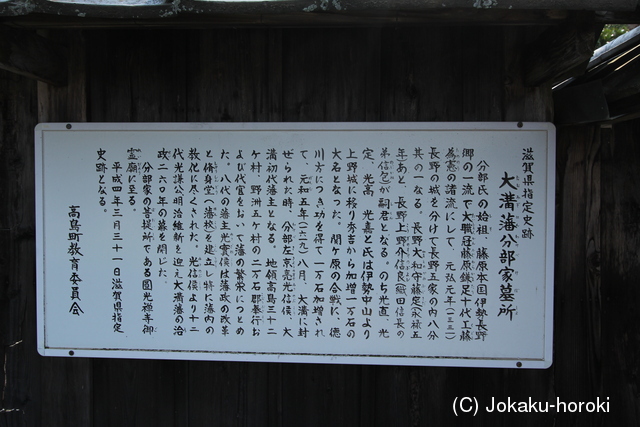 滋賀県指定史跡
大溝藩分部家墓所
分部氏の始祖、藤原本国伊勢長野
郷の一流で大職冠藤原鎌足十代工藤
為憲の諸流にして、元弘元年(一三三一)
長野の城を分けて長野五家の内八分
其の一なる。長野大和守藤定(永禄五
年)あと、長野上野介信良(織田信長の
弟信包)が嗣君となる。のち光直、光
定、光高、光嘉と氏は伊勢中山より
上野城に移り秀吉から加増一万石の
大名となった。関ヶ原の合戦に、徳
川方につき功を得て一万石加増され
て、元和五年(一六一九)八月、大溝に封
ぜられた時、分部左京亮光信侯、大
溝初代藩主となる。地領高島三十二
ヶ村、野洲五ヶ村の二万石郡奉行お
よび代官をおいて藩の繁栄につとめ
た。八代の藩主光實侯は藩政の改革
と脩身堂(藩校)を建立し特に藩内の
教化に尽くされた。光信侯より十二
代光謙公明治維新を迎え大溝藩の治
政二六〇年の幕を閉じた。
分部家の菩提所である圓光禅寺御
霊廟に至る。
平成四年三月三十一日滋賀県指定
史跡となる。
高島町教育委員会
(C) Jokaku-horoki